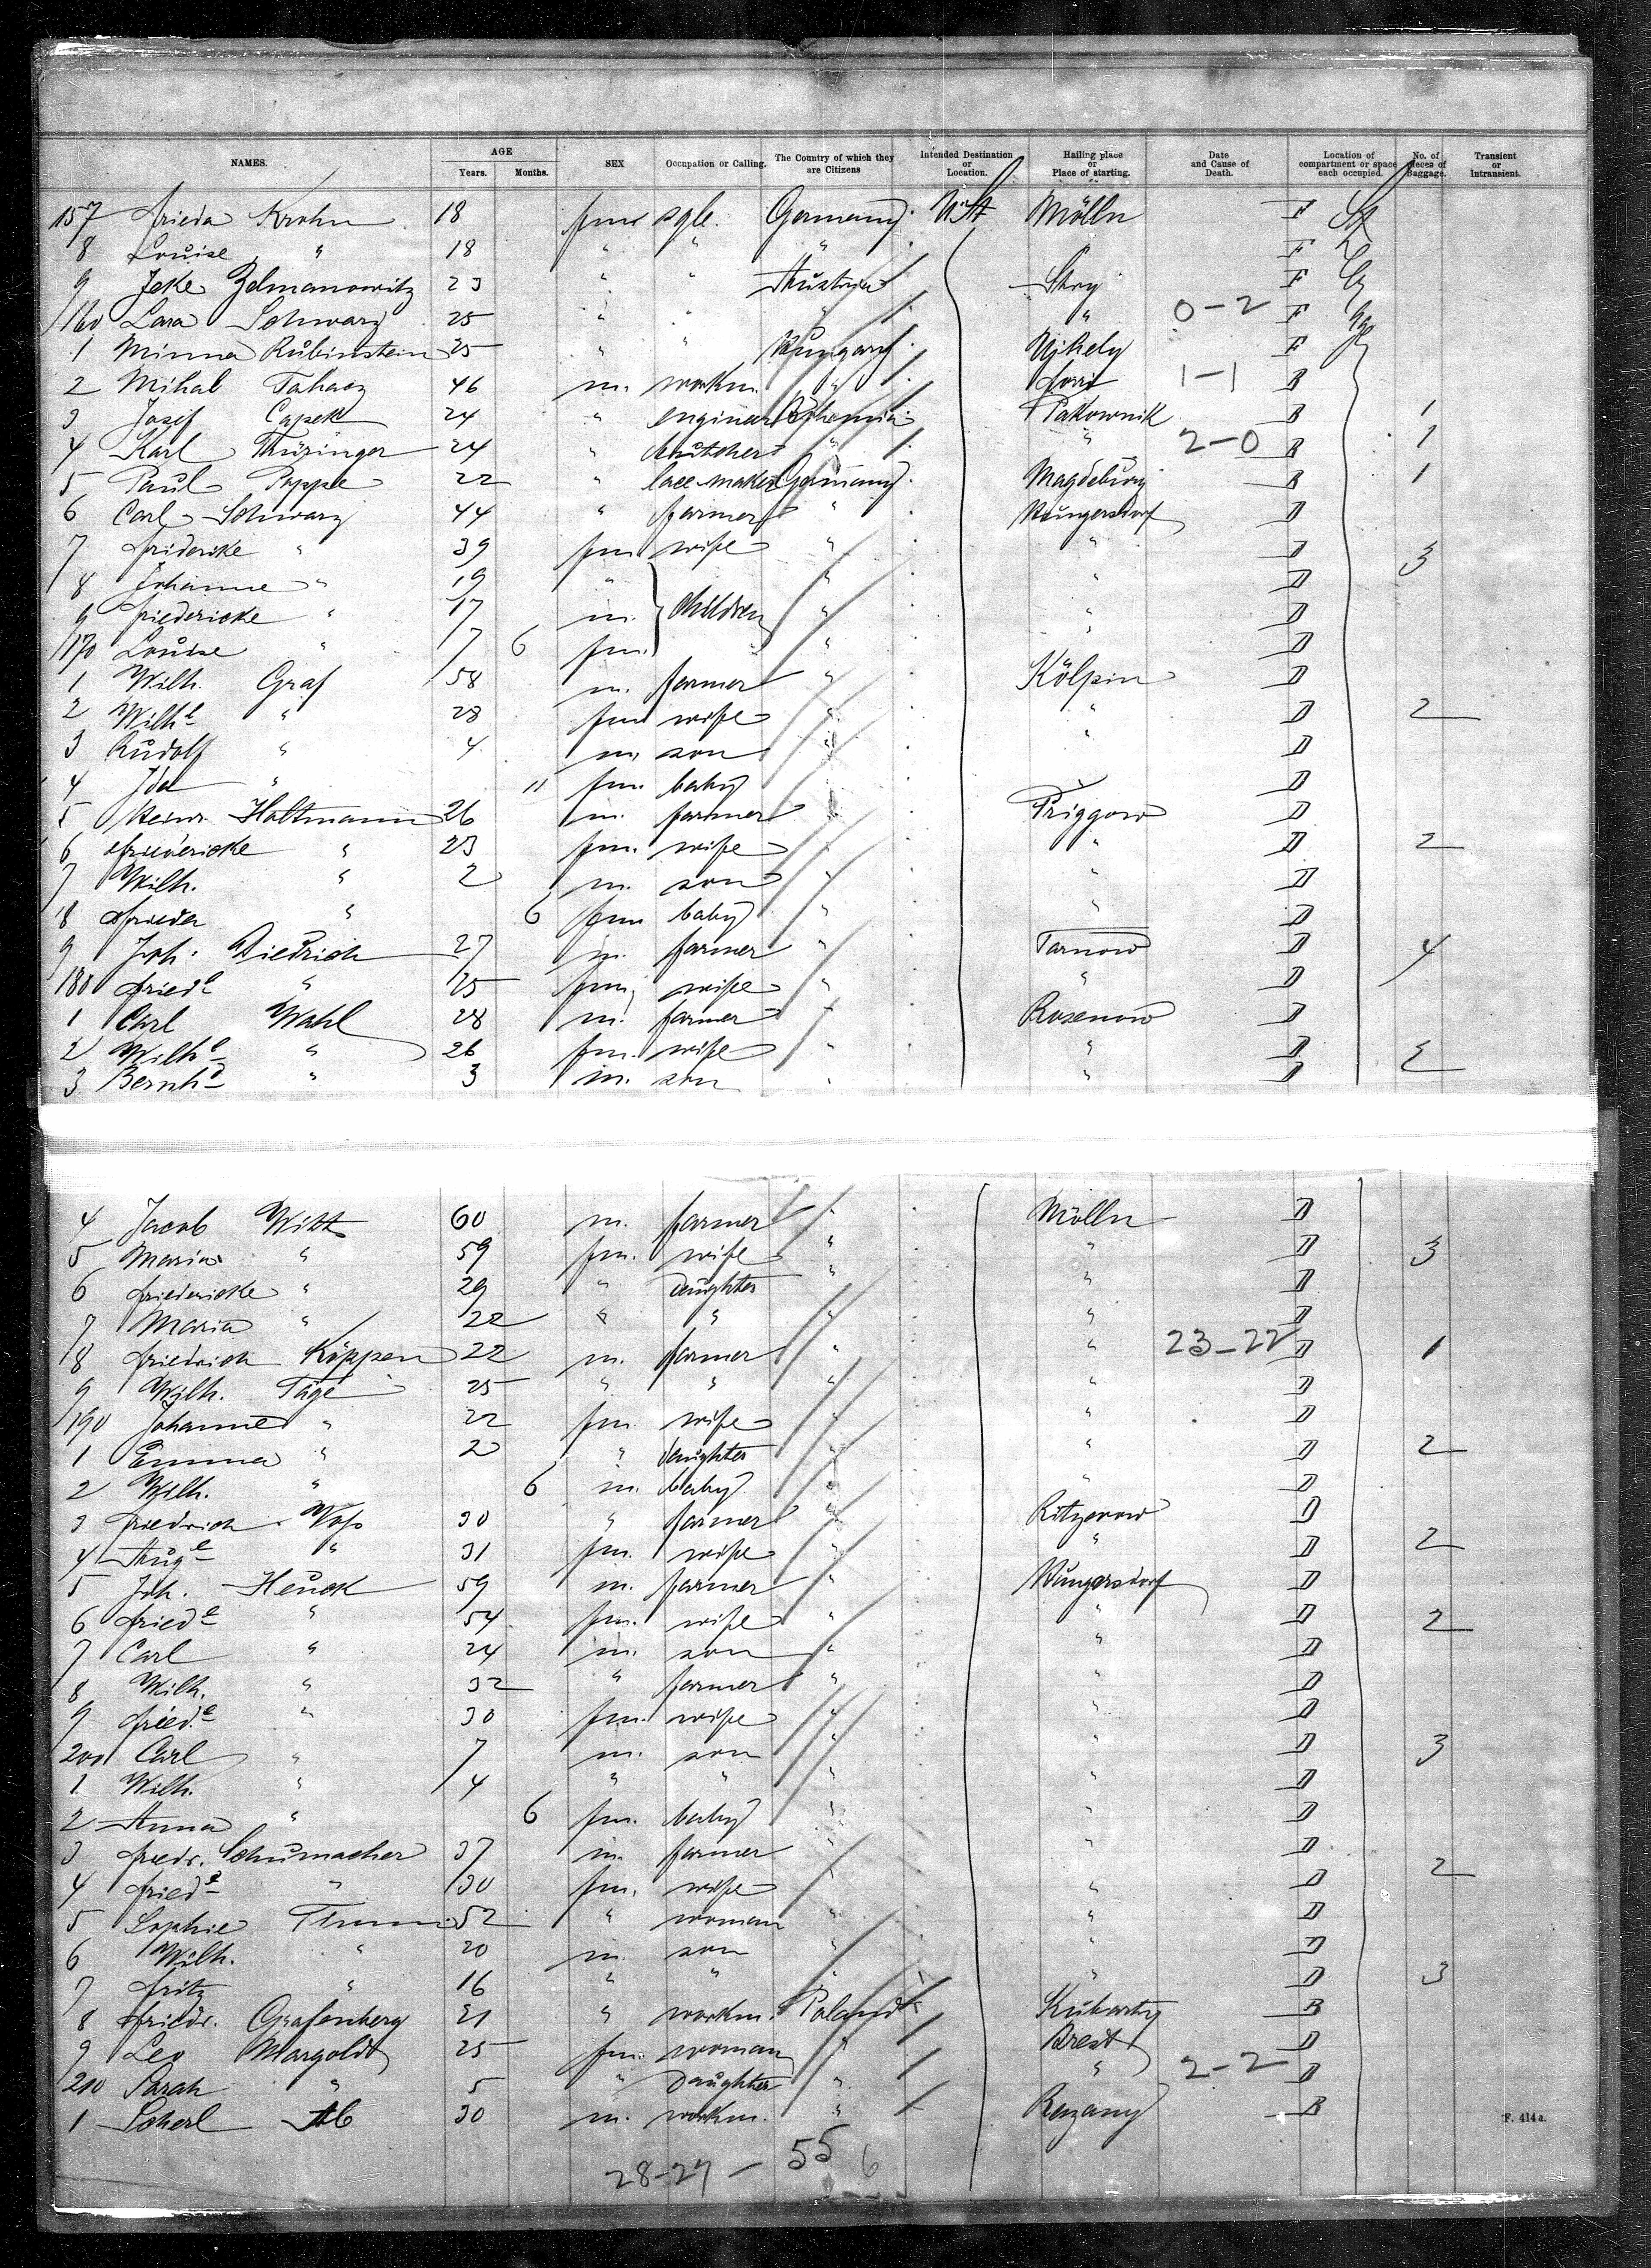 NAMES. AGE Years. Months. SEX Occupation or Calling. The Country of which they are Citizens Intended Destination or Location. Hailing place or Place of starting. Date and Cause of Death. Location of compartment or space each occupied. No. of pieces of Baggage. Transient or Intransient.
157 Frieda Krohn 18 fm sgle. Germany U.St Mölln F
8 Louise " 18 " " " F
9 Zelmanowitz 23 " " Austria Stry F
160 Schwarz 25 " " " " 0-2 F
1 Minna Rubinstein 25 " " Hungary Ujhely F
2 Mihal 46 m. workm. " 1-1 B
3 Josef Capek 24 " engineer Bohemia B 1
4 Karl Thüringer 24 " butcher " " 2-0 B 1
5 Paul Poppe 22 " lace maker Germany Magdeburg B 1
6 Carl Schwarz 44 " farmer " D
7 Friderike " 39 fm wife " " D 3
8 Johanne " 19 " children " " D
9 Friedericke " 17 m. " " D
170 Louise " 7 6 fm. " D
1 Wilh. Graf 58 m. farmer " Kölpin D
2 Wilhe " 28 fm wife " " D 2
3 Rudolf " 4 m. son " " D
4 Ida " 11 fm. baby D
5 Heinr. Holtmann 26 m. farmer Priggow D
6 Friedericke " 23 fm. wife " " D 2
7 Wilh. " 2 m. son " " D
8 Frieda " 6 fm baby " " D
9 Joh. Diedrich 27 m. farmer " Tarnow D 4
180 Friede " 25 fm. wife " " D
1 Carl Wahl 28 m. farmer " Rosenow D
2 Wilhe " 26 fm. wife " " D 2
3 Bernhd " 3 m. son " " D
4 Jacob Witt 60 m. farmer " Mölln D
5 Maria " 59 fm. wife " " D 3
6 Friedericke " 29 " daughter " " D
7 Maria " 22 " " " " D
8 Friedrich Köppen 22 m. farmer " " 23-22 D 1
9 Wilh. Täge 25 " " " " D
190 Johanne " 22 fm. wife " " D
1 Emma " 2 " daughter " " D 2
2 Wilh. " 6 m. baby " " D
3 Friedrich Voss 30 " farmer " Ritzerow D
4 Auge " 31 fm. wife " " D 2
5 Joh. Heuck 59 m. farmer " D
6 Friede " 54 fm. wife " " D 2
7 Carl " 24 m. son " " D
8 Wilh. " 32 " farmer " " D
9 Friede " 30 fm. wife " " D
200 Carl " 7 m. son " " D 3
1 Wilh. " 4 " " " " D
2 Anna " 6 fm. baby " " D
3 Friedr. Schumacher 37 m. farmer " " D
4 Friede " 30 fm. wife " " D 2
5 Sophie 52 " woman " " D
6 Wilh. " 20 m. son " " D
7 Fritz " 16 " " " " D 3
8 Friedr. Grafenberg 21 " workm. Poland B
9 Leo Margold 25 fm. woman " Brest D
210 Sarah " 5 " daughter " " 2-2 D
1 30 m. workm. " B
F. 414a.
28-27 - 55 6